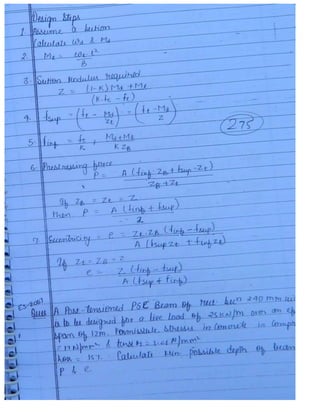 Design Steps
1. Assume a Section
Calculate Wd & Md
2. Md = Wd l²
8
3. Section Modulus required
Z = (1-K) Md + ML
(K fc - ft)
4. fsup = (ft - Md) = (ft - Md)
Zt Z
275
5. finf = ft + Md+ML
K K ZB
6. Prestressing force
P = A (finf ZB + fsup Zt)
ZB + Zt
If ZB = Zt = Z
then P = A (finf + fsup)
2
7. Eccentricity = e = Zt ZB (finf - fsup)
A (fsup Zt + finf ZB)
If Zt = ZB = Z
e = Z (finf - fsup)
A (fsup + finf)
Ques A Post-tensioned PSC Beam of rect secn 240 mm
is to be designed for a live load of 25 kN/m over an
span of 12m. Permissible stresses in concrete in comp
= 17 N/mm² & tension
loss = 15%. Calculate Min possible depth of beam
P & e.